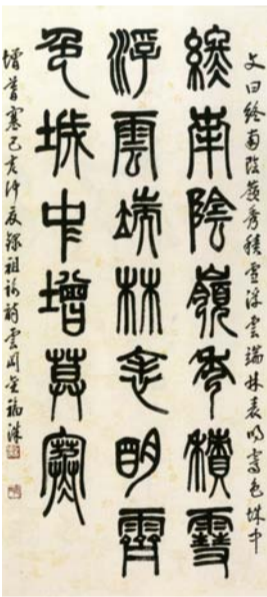 文曰終南陰嶺秀積雪浮雲端林表明霽色城中
終南陰嶺秀積雪
浮雲端林表明霽
色城中增莫寒
增暮寒己亥録祖詠詩雲間金福洙